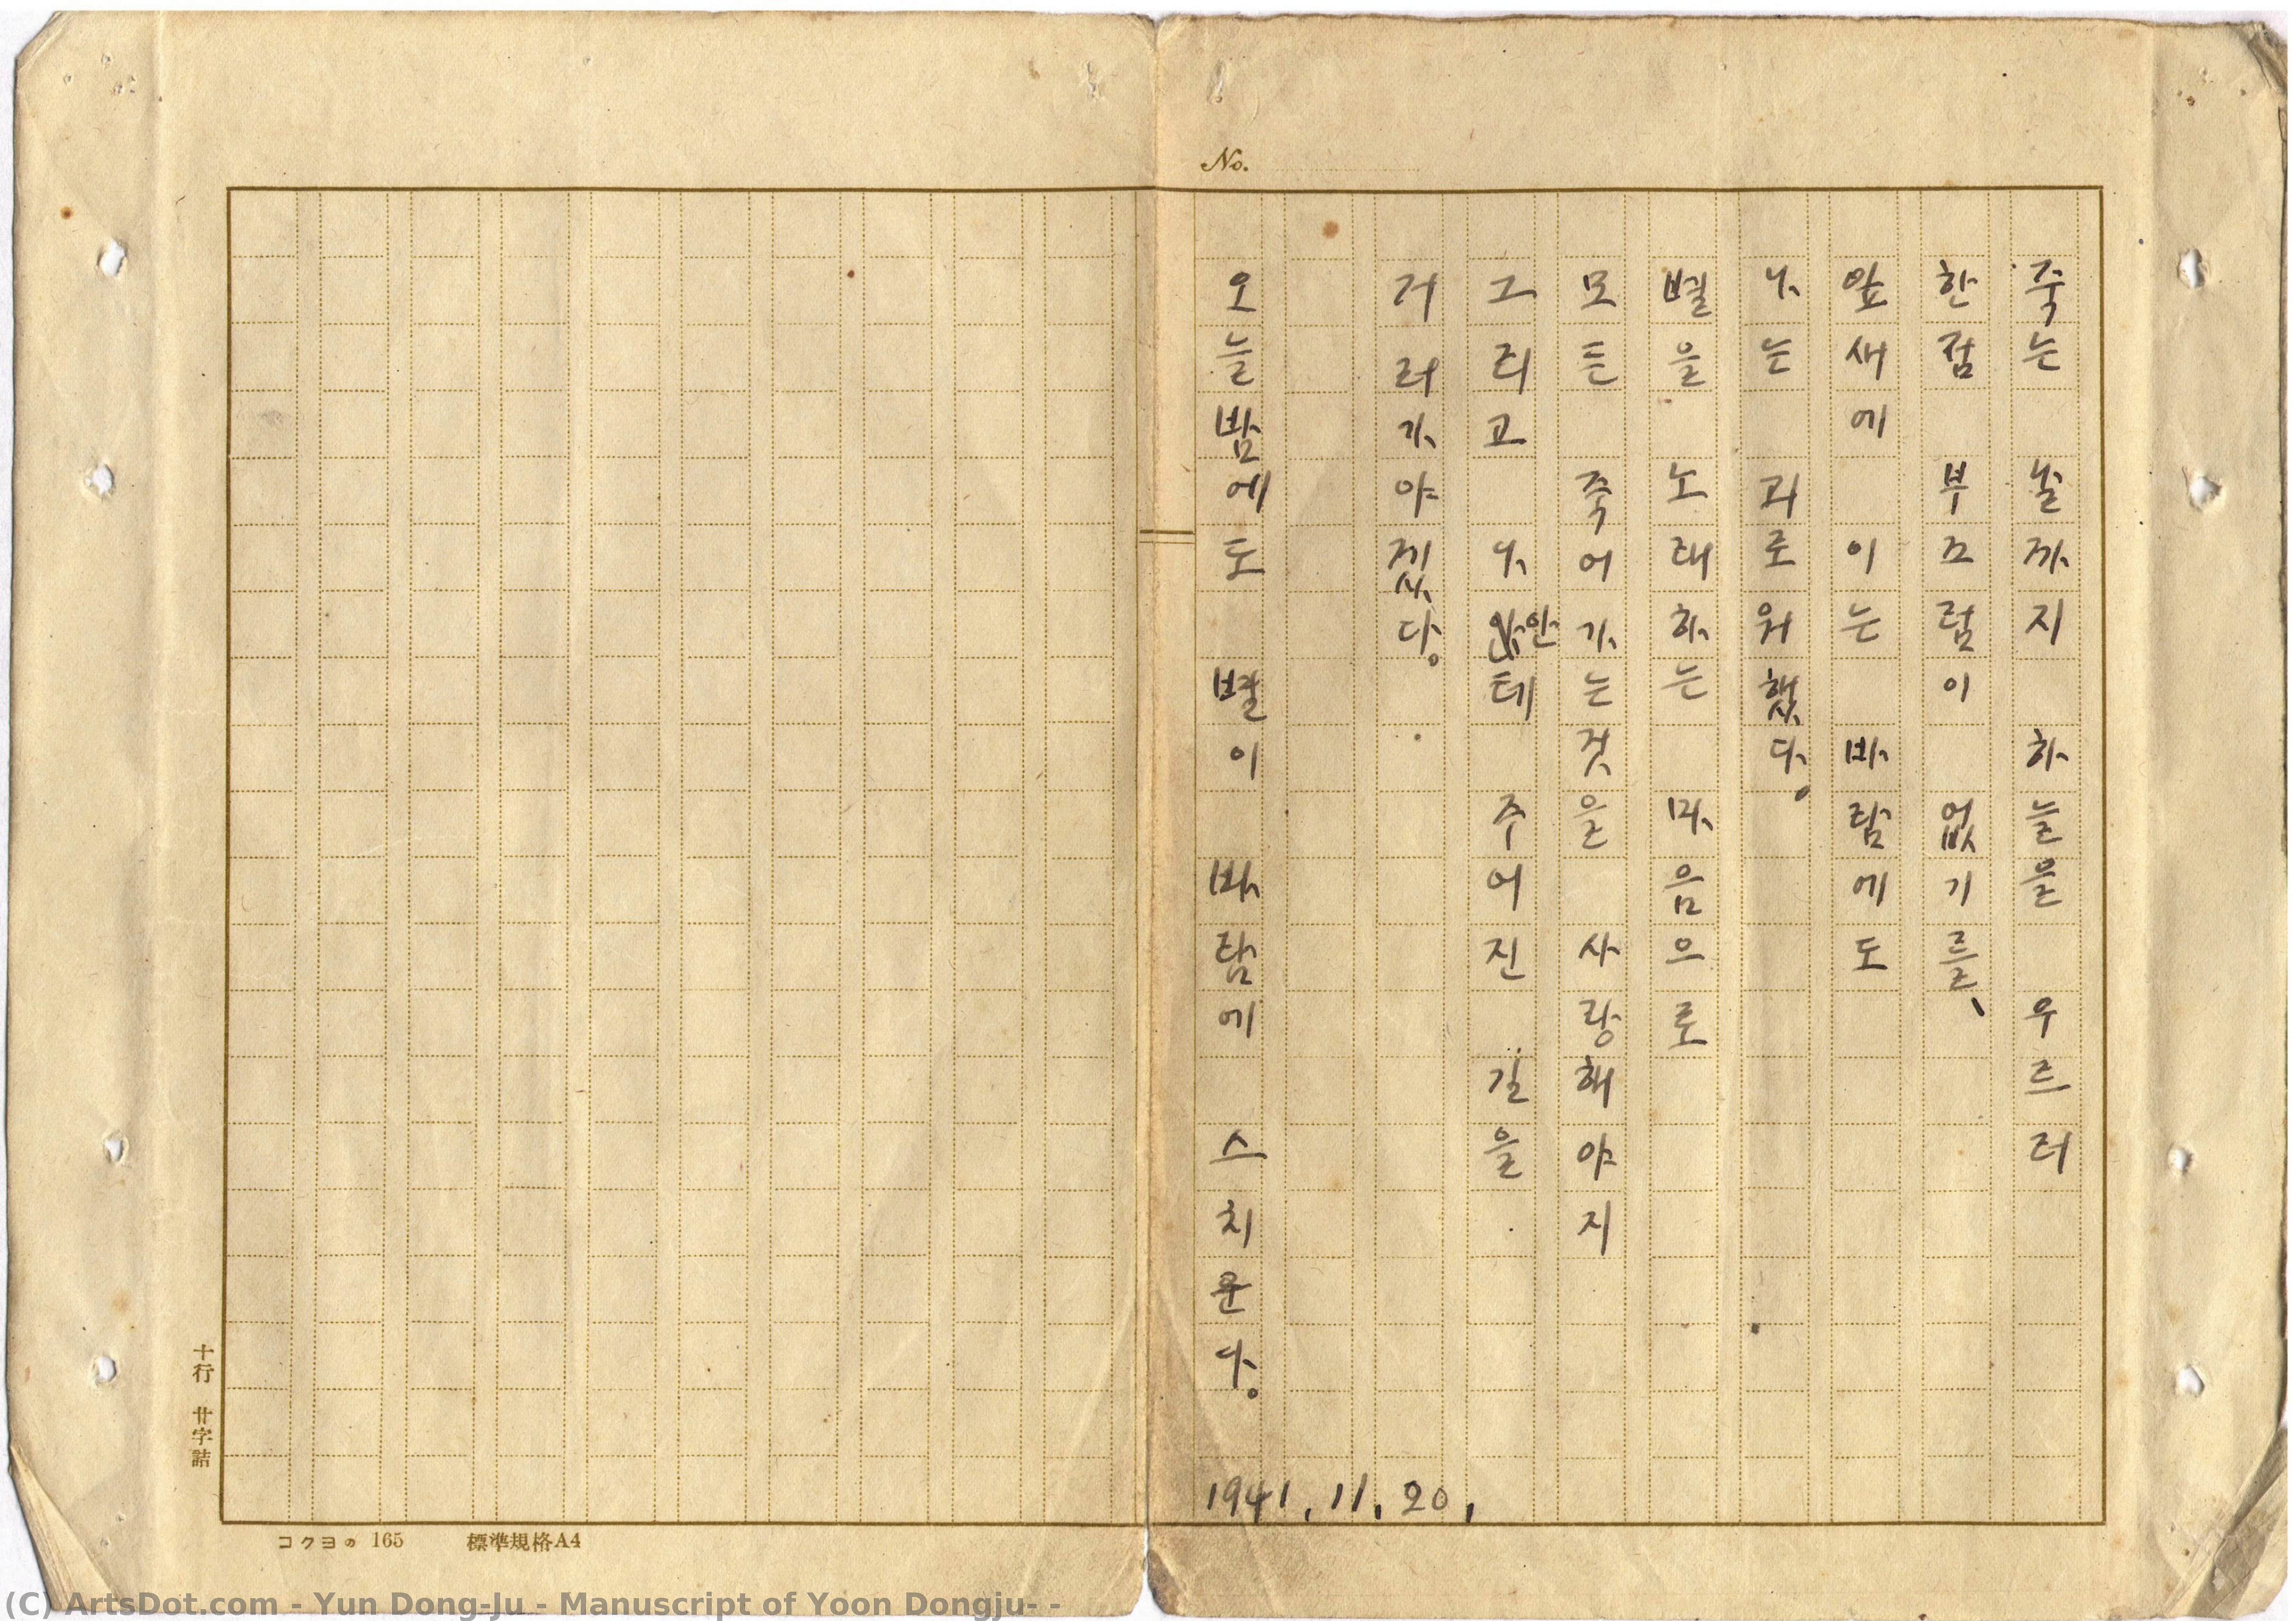 No.
죽는 날까지 하늘을 우르러
한점 부끄럼이 없기를、
잎새에 이는 바람에도
나는 괴로워했다。
별을 노래하는 마음으로
모든 죽어가는것을 사랑해야지
그리고 나안테 주어진 길을
거러가야겠다。
오늘밤에도 별이 바람에 스치운다。
1941. 11. 20.
十行 廿字詰
コクヨの 165 標準規格A4
(C) ArtsDot.com - Yun Dong-Ju - Manuscript of Yoon Dongju- -